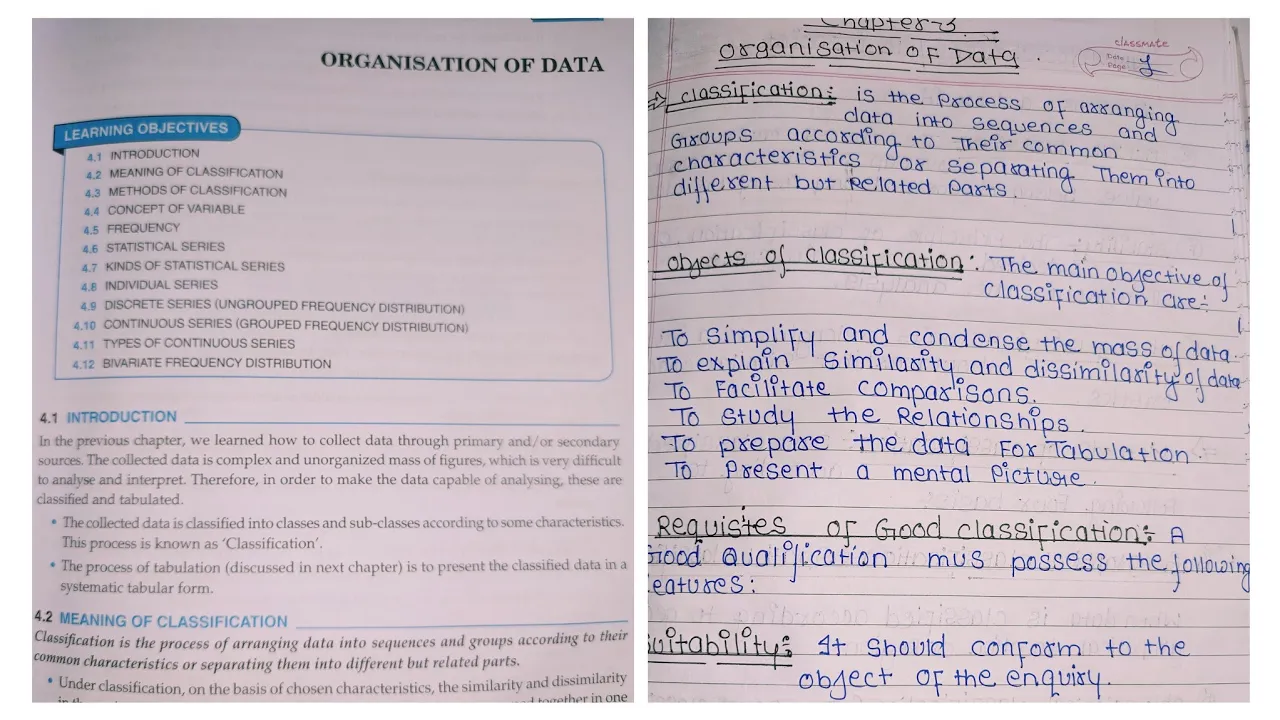 ORGANISATION OF DATA
LEARNING OBJECTIVES
4.1 INTRODUCTION
4.2 MEANING OF CLASSIFICATION
4.3 METHODS OF CLASSIFICATION
4.4 CONCEPT OF VARIABLE
4.5 FREQUENCY
4.6 STATISTICAL SERIES
4.7 KINDS OF STATISTICAL SERIES
4.8 INDIVIDUAL SERIES
4.9 DISCRETE SERIES (UNGROUPED FREQUENCY DISTRIBUTION)
4.10 CONTINUOUS SERIES (GROUPED FREQUENCY DISTRIBUTION)
4.11 TYPES OF CONTINUOUS SERIES
4.12 BIVARIATE FREQUENCY DISTRIBUTION
4.1 INTRODUCTION
In the previous chapter, we learned how to collect data through primary and/or secondary
sources. The collected data is complex and unorganized mass of figures, which is very difficult
to analyse and interpret. Therefore, in order to make the data capable of analysing, these are
classified and tabulated.
• The collected data is classified into classes and sub-classes according to some characteristics.
This process is known as 'Classification'.
• The process of tabulation (discussed in next chapter) is to present the classified data in a
systematic tabular form.
4.2 MEANING OF CLASSIFICATION
Classification is the process of arranging data into sequences and groups according to their
common characteristics or separating them into different but related parts.
• Under classification, on the basis of chosen characteristics, the similarity and dissimilarity
together in one
Chapter-3
Organisation of Data.
classmate
Date
Page 1
→ classification:- is the process of arranging
data into sequences and
Groups according to Their common
characteristics or separating Them into
different but Related Parts.
objects of classification:- The main objective of
classification are:-
To simplify and condense the mass of data.
To explain similarity and dissimilarity of data
To Facilitate comparisons.
To study the Relationships.
To prepare the data For Tabulation.
To Present a mental Picture.
Requistes of Good classification:- A
Good Qualification mus possess the following
eatures:
uitability:- It should conform to the
object of the enquiry.